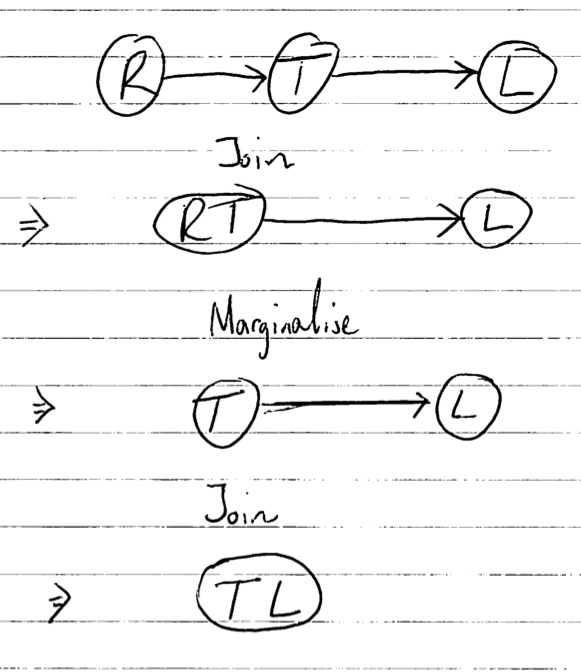 R T L
Join
⇒ RT L
Marginalise
⇒ T L
Join
⇒ TL